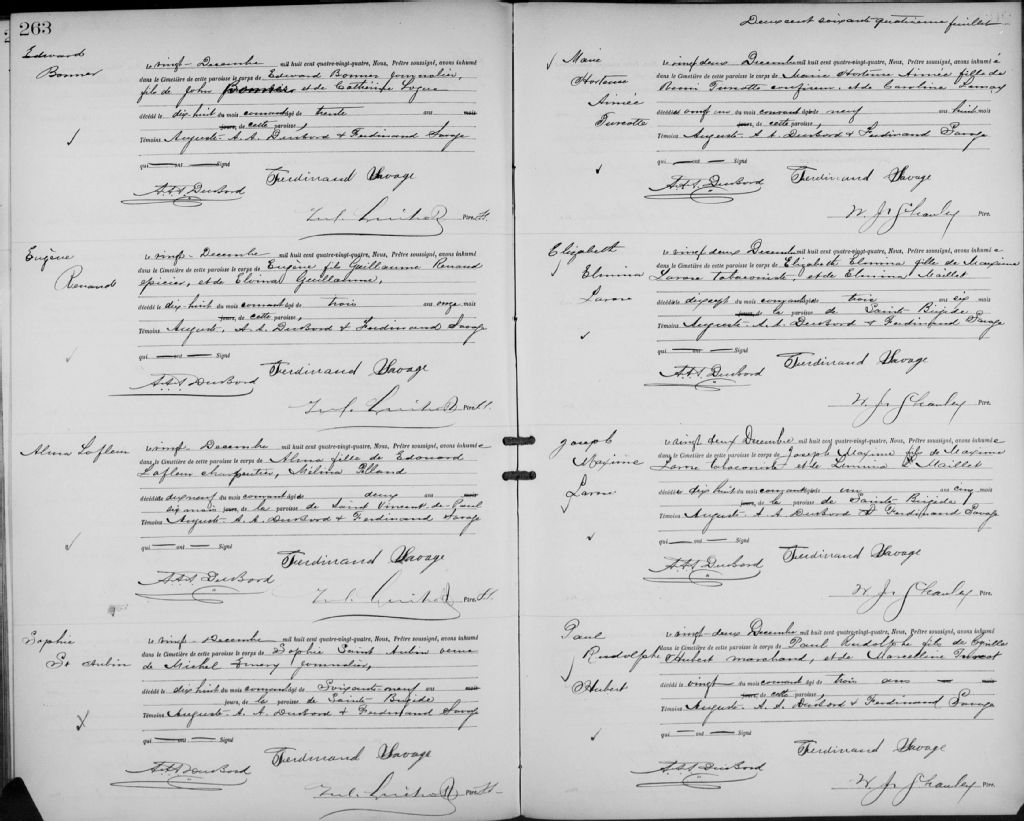 263
Edward
Bonner
Le vingt Decembre mil huit cent quatre-vingt-quatre, Nous, Prêtre soussigné, avons inhumé
dans le Cimetière de cette paroisse le corps de Edward Bonner journalier,
fils de John Bonner et de Cathérine Logue
décédé le dix huit du mois courant âgé de trente ans mois
jours, de cette paroisse,
Témoins Auguste A. A. DuBord & Ferdinand Savage
qui ont Signé
Ferdinand Savage
A.A.A. DuBord
Ptre.
Eugène
Renaud
Le vingt Decembre mil huit cent quatre-vingt-quatre, Nous, Prêtre soussigné, avons inhumé
dans le Cimetière de cette paroisse le corps de Eugène fils Guillaume Renaud
epicier, et de Elvina Guillaume,
décédé le dix-huit du mois courant âgé de trois ans onze mois
jours, de cette paroisse,
Témoins Auguste, A. A. DuBord & Ferdinand Savage
qui ont Signé
Ferdinand Savage
A.A.A. DuBord
Ptre.
Alma Lafleur
Le vingt Decembre mil huit cent quatre-vingt-quatre, Nous, Prêtre soussigné, avons inhumée
dans le Cimetière de cette paroisse le corps de Alma fille de Edouard
Lafleur charpentier, Mélina
décédée dix neuf du mois courant âgé de deux ans mois
six mois jours, de la paroisse de Saint Vincent de Paul
Témoins Auguste A. A. DuBord & Ferdinand Savage
qui ont Signé
Ferdinand Savage
A.A.A. DuBord
Ptre.
Sophie
St Aubin
Le vingt Decembre mil huit cent quatre-vingt-quatre, Nous, Prêtre soussigné, avons inhumé
dans le Cimetière de cette paroisse le corps de Sophie Saint Aubin veuve
de Michel Emery journalier,
décédé le dix huit du mois courant âgé de Soixante neuf ans mois
jours, de la paroisse de Sainte Brigide
Témoins Auguste A. A. DuBord & Ferdinand Savage
qui ont Signé
Ferdinand Savage
A.A.A. DuBord
Ptre.
Deux cent soixante quatrieme feuillet
Marie
Hortense
Aimée
Turcotte
Le vingt deux Decembre mil huit cent quatre-vingt-quatre, Nous, Prêtre soussigné, avons inhumé
dans le Cimetière de cette paroisse le corps de Marie Hortense Aimée fille de
Remi Turcotte confiseur et de Caroline Lemay
décédé du mois courant âgé de neuf ans huit mois
jours, de cette paroisse,
Témoins Auguste A. A. DuBord & Ferdinand Savage
qui ont Signé
Ferdinand Savage
A.A.A. DuBord
W. J. Shanley Ptre.
Elizabeth
Elmina
Larose
Le vingt deux Decembre mil huit cent quatre-vingt-quatre, Nous, Prêtre soussigné, avons inhumée
dans le Cimetière de cette paroisse le corps de Elizabeth Elmina fille de Maxime
Larose tabaconiste, et de Elmina Maillet
décédée dix sept du mois courant âgé de trois ans six mois
jours, de la paroisse de Sainte Brigide
Témoins Auguste A. A. DuBord & Ferdinand Savage
qui ont Signé
Ferdinand Savage
A.A.A. DuBord
W. J. Shanley Ptre.
Joseph
Maxime
Larose
Le vingt deux Decembre mil huit cent quatre-vingt-quatre, Nous, Prêtre soussigné, avons inhumé
dans le Cimetière de cette paroisse le corps de Joseph Maxime fils de Maxime
Larose et de Elmina Maillet
décédé le dix huit du mois courant âgé de un ans cinq mois
jours, de la paroisse de Sainte Brigide,
Témoins Auguste A. A. DuBord & Ferdinand Savage
qui ont Signé
Ferdinand Savage
A.A.A. DuBord
W. J. Shanley Ptre.
Paul
Rudolphe
Hubert
Le vingt deux Decembre mil huit cent quatre-vingt-quatre, Nous, Prêtre soussigné, avons inhumé
dans le Cimetière de cette paroisse le corps de Paul Rudolphe fils de Cyrille
Hubert marchand, et de Marcelline Turcot
décédé le vingt du mois courant âgé de trois ans mois
jours, de cette paroisse,
Témoins Auguste A. A. DuBord & Ferdinand Savage
qui ont Signé
Ferdinand Savage
A.A.A. DuBord
W. J. Shanley Ptre.